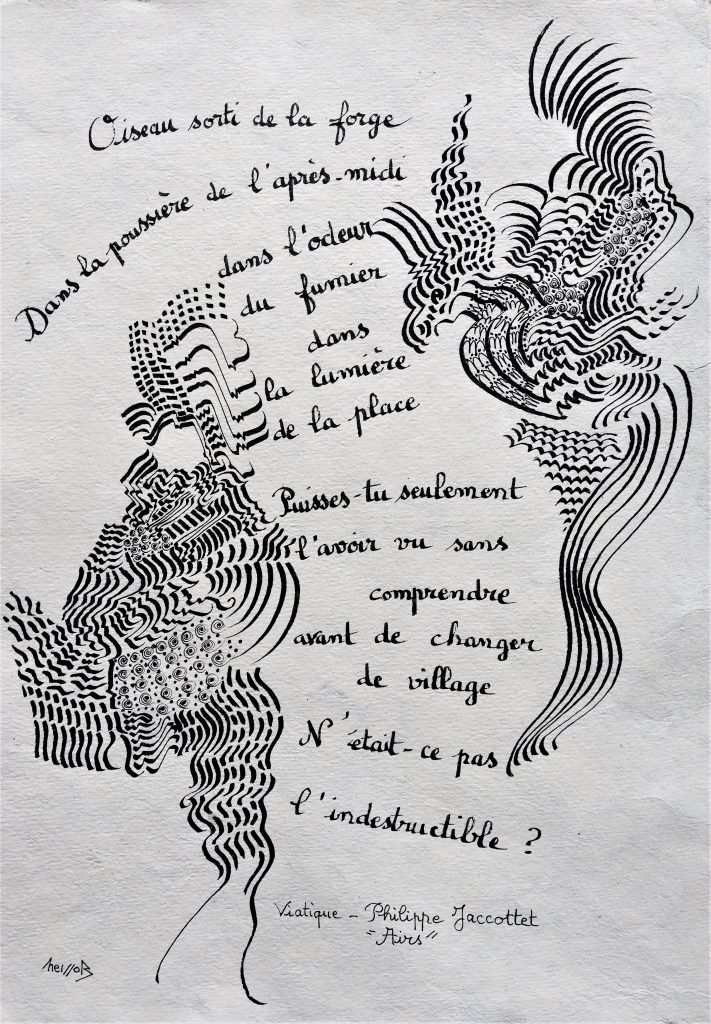 Oiseau sorti de la forge
Dans la poussière de l'après-midi
dans l'odeur
du fumier
dans
la lumière
de la place
Puisses-tu seulement
l'avoir vu sans
comprendre
avant de changer
de village
N'était-ce pas
l'indestructible ?
Viatique – Philippe Jaccottet
"Airs"